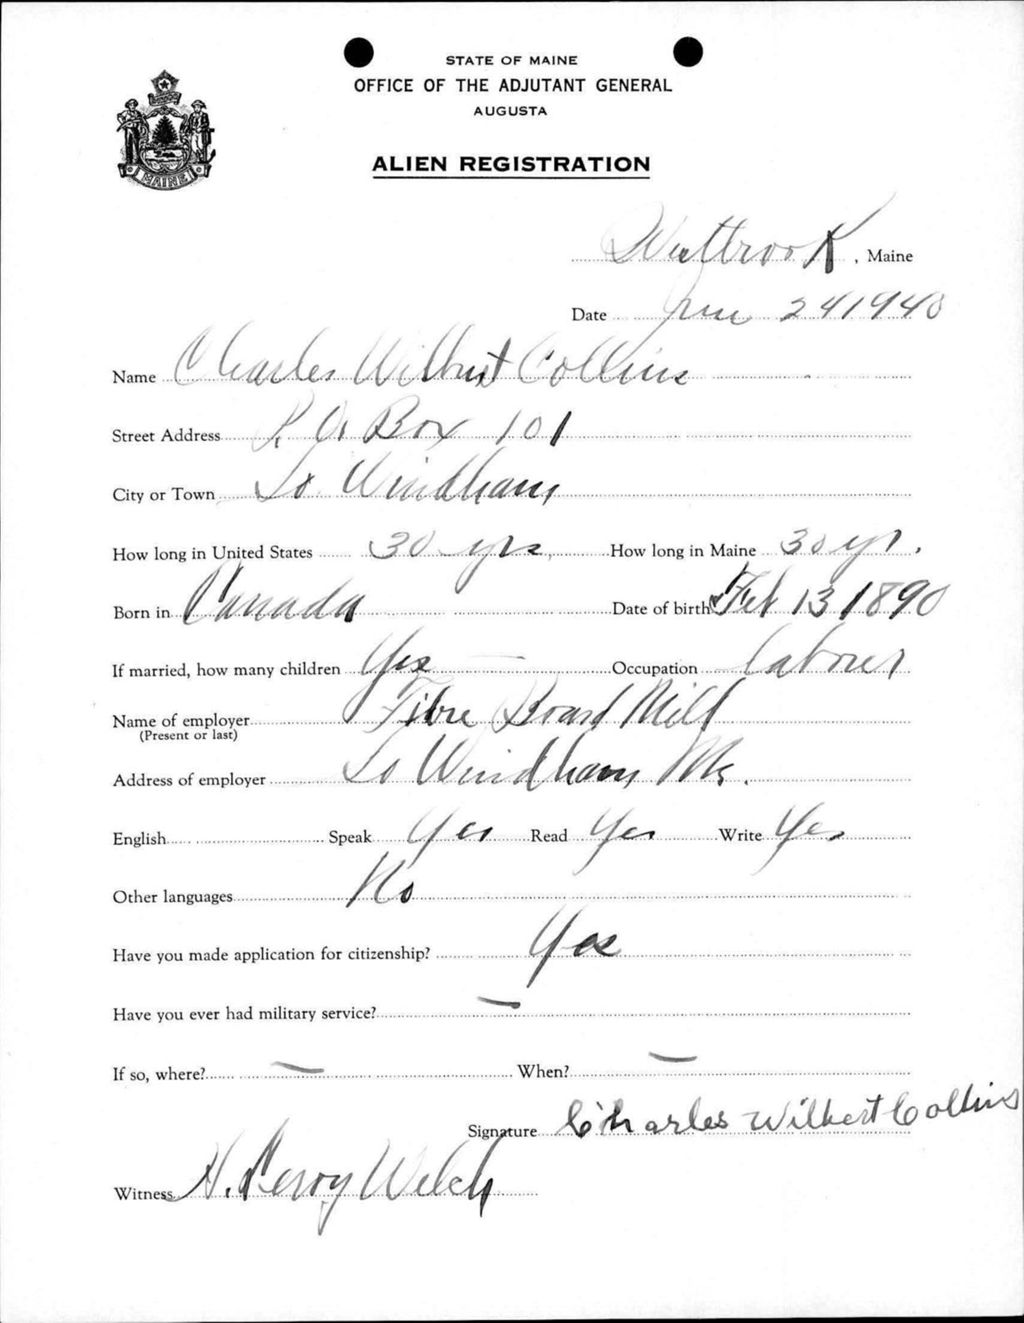 STATE OF MAINE
OFFICE OF THE ADJUTANT GENERAL
AUGUSTA
ALIEN REGISTRATION
MAINE
Westbrook, Maine
Date June 24 1940
Name Charles Wilbert Collins
Street Address P. O. Box 101
City or Town So Windham
How long in United States 30 yrs, How long in Maine 30 yr.
Born in Canada Date of birth Feb 13 1890
If married, how many children Yes Occupation labourer
Name of employer Fibre Board Mill
(Present or last)
Address of employer So Windham, Me.
English Speak Yes Read Yes Write Yes
Other languages No
Have you made application for citizenship? Yes
Have you ever had military service? —
If so, where? — When? —
Signature Charles Wilbert Collins
Witness H. Leroy Welch